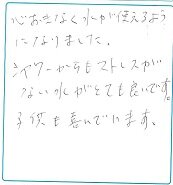 心おきなく水が使えるよう
になりました。
シャワーからもストレスが
ない水がとても良いです。
子供も喜んでいます。